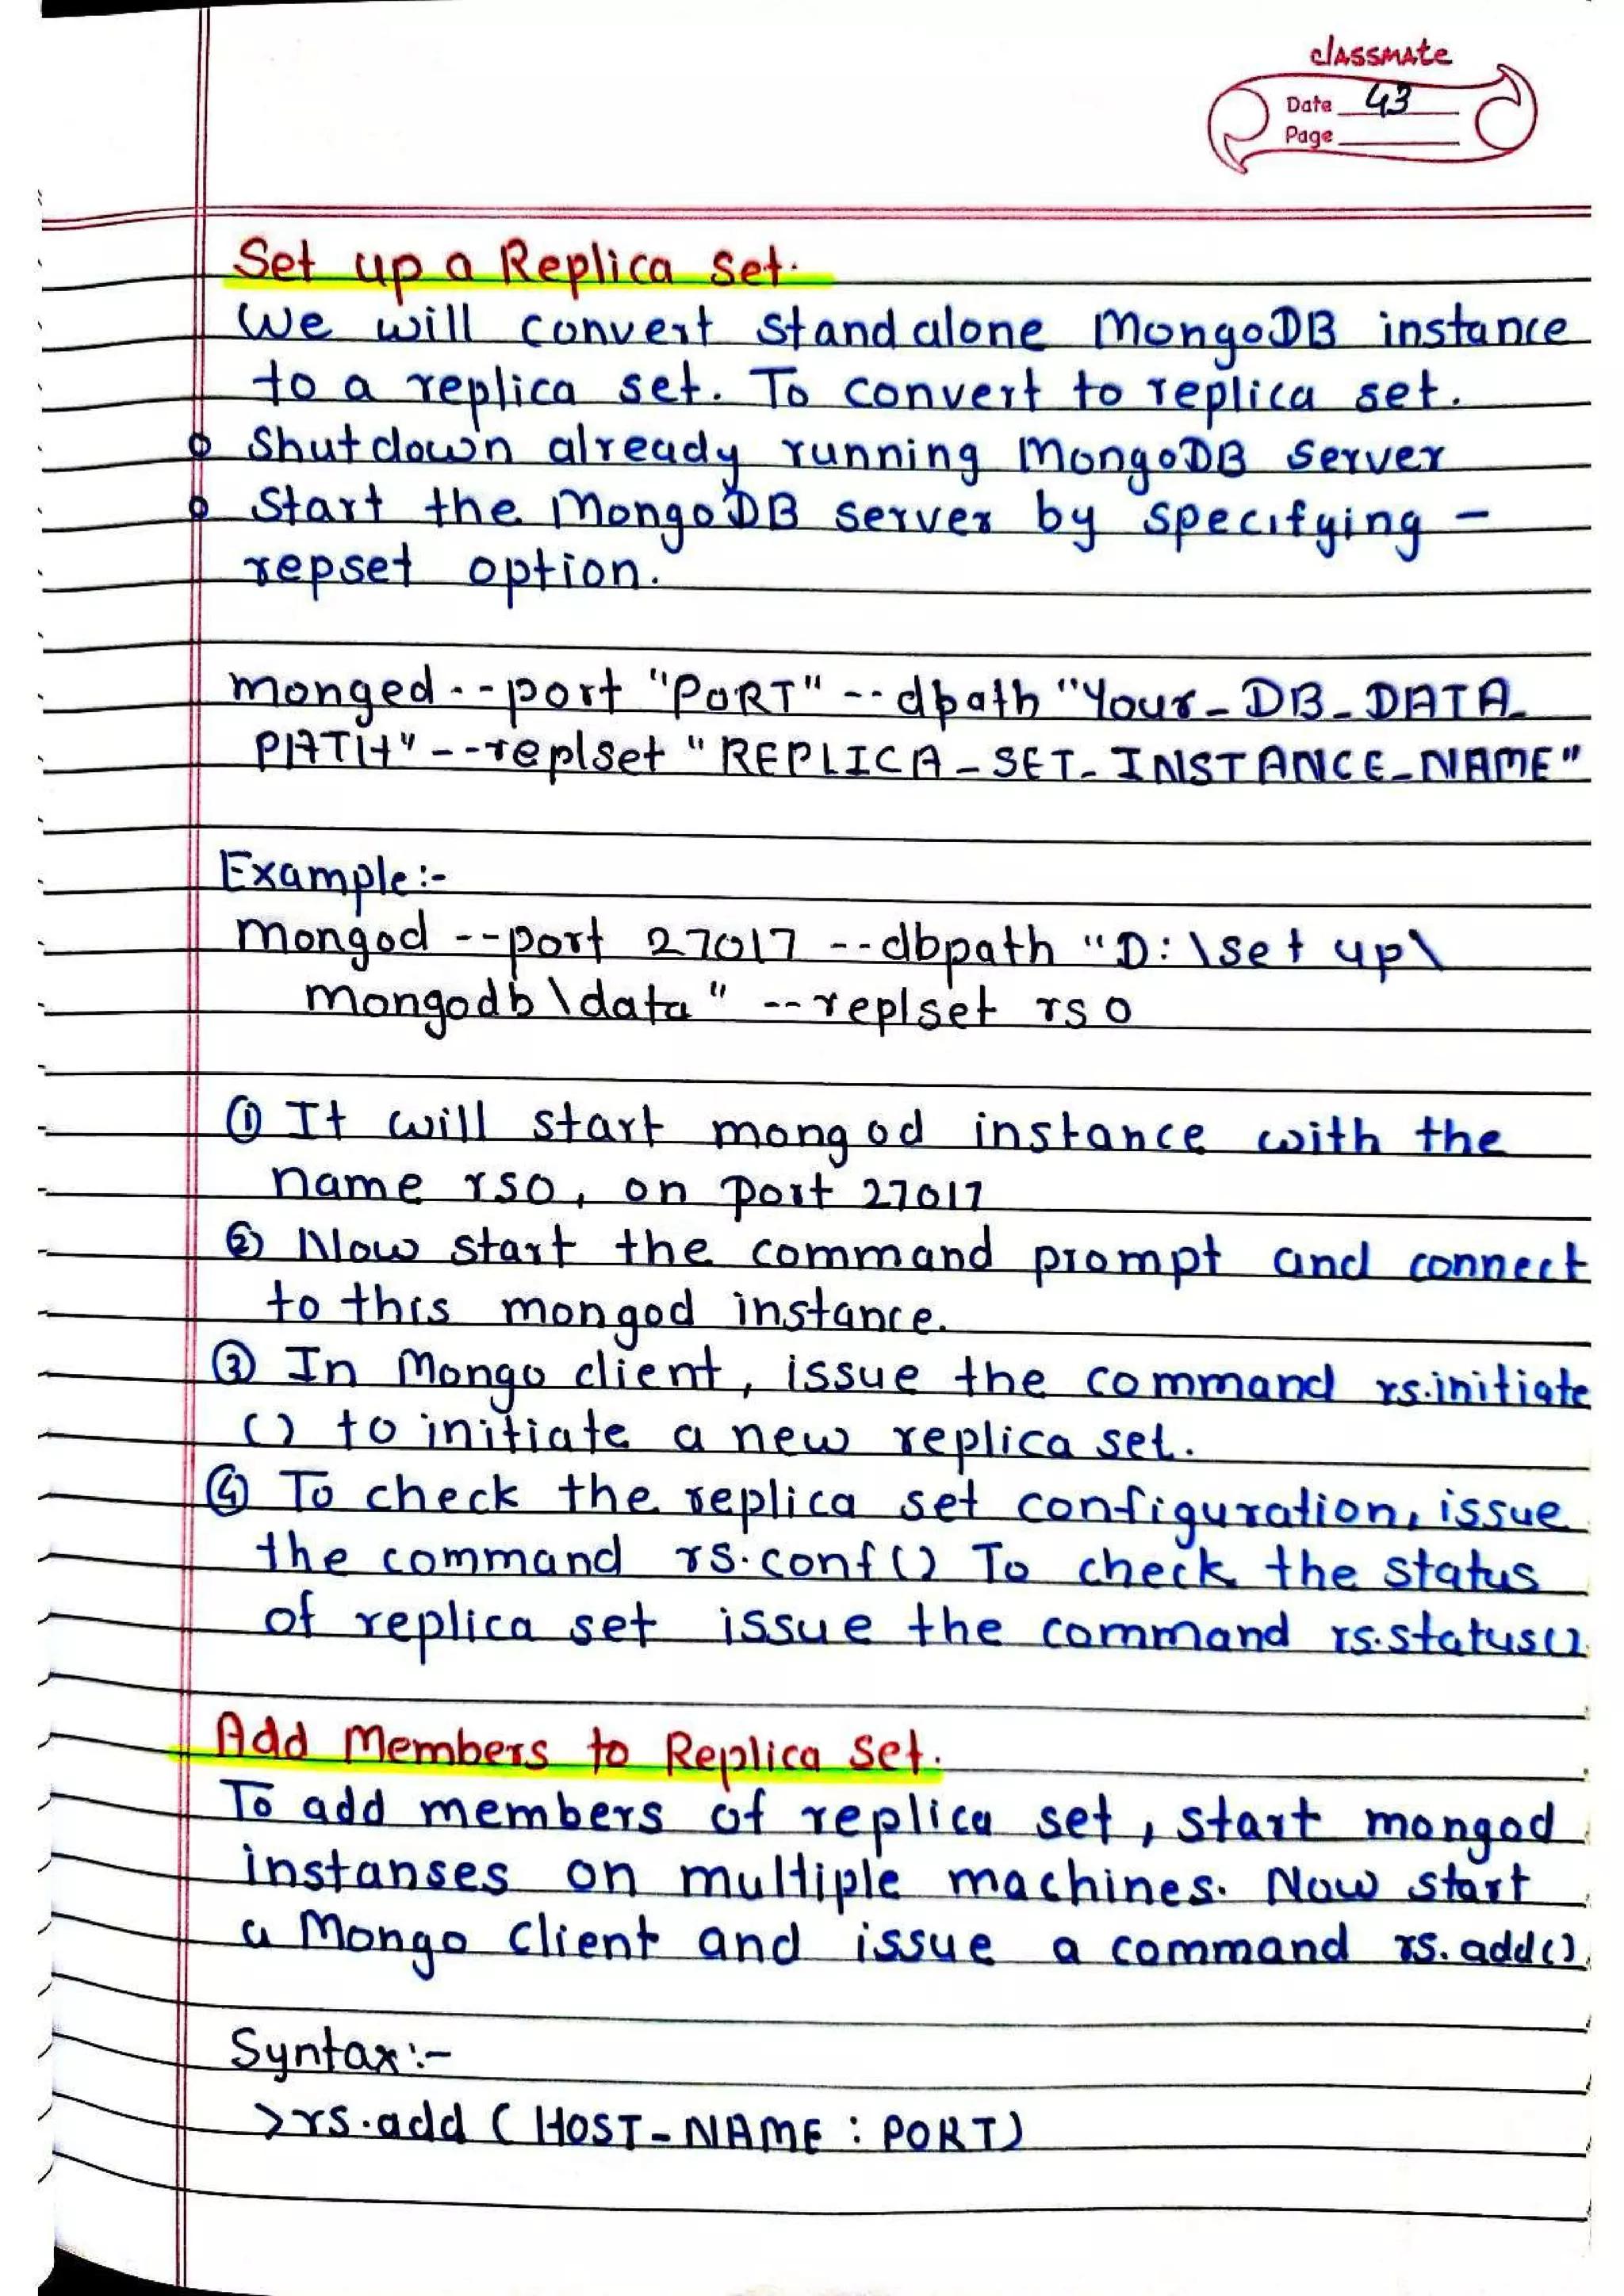 classmate
Date 43
Page
Set up a Replica Set.
We will convert standalone MongoDB instance
to a replica set. To convert to replica set.
Shutdown already running MongoDB server
Start the MongoDB server by specifying -
repset option.
monged --port "PORT" --dbpath "Your_DB_DATA_
PATH" --replset "REPLICA_SET_INSTANCE_NAME"
Example:-
mongod --port 27017 --dbpath "D:\set up\
mongodb\data" --replset rs0
① It will start mongod instance with the
name rs0, on port 27017
② Now start the command prompt and connect
to this mongod instance.
③ In Mongo client, issue the command rs.initiate
() to initiate a new replica set.
④ To check the replica set configuration, issue
the command rs.conf() To check the status
of replica set issue the command rs.status()
Add Members to Replica Set.
To add members of replica set, start mongod
instanses on multiple machines. Now start
a Mongo client and issue a command rs.add()
Syntax:-
>rs.add (HOST_NAME : PORT)